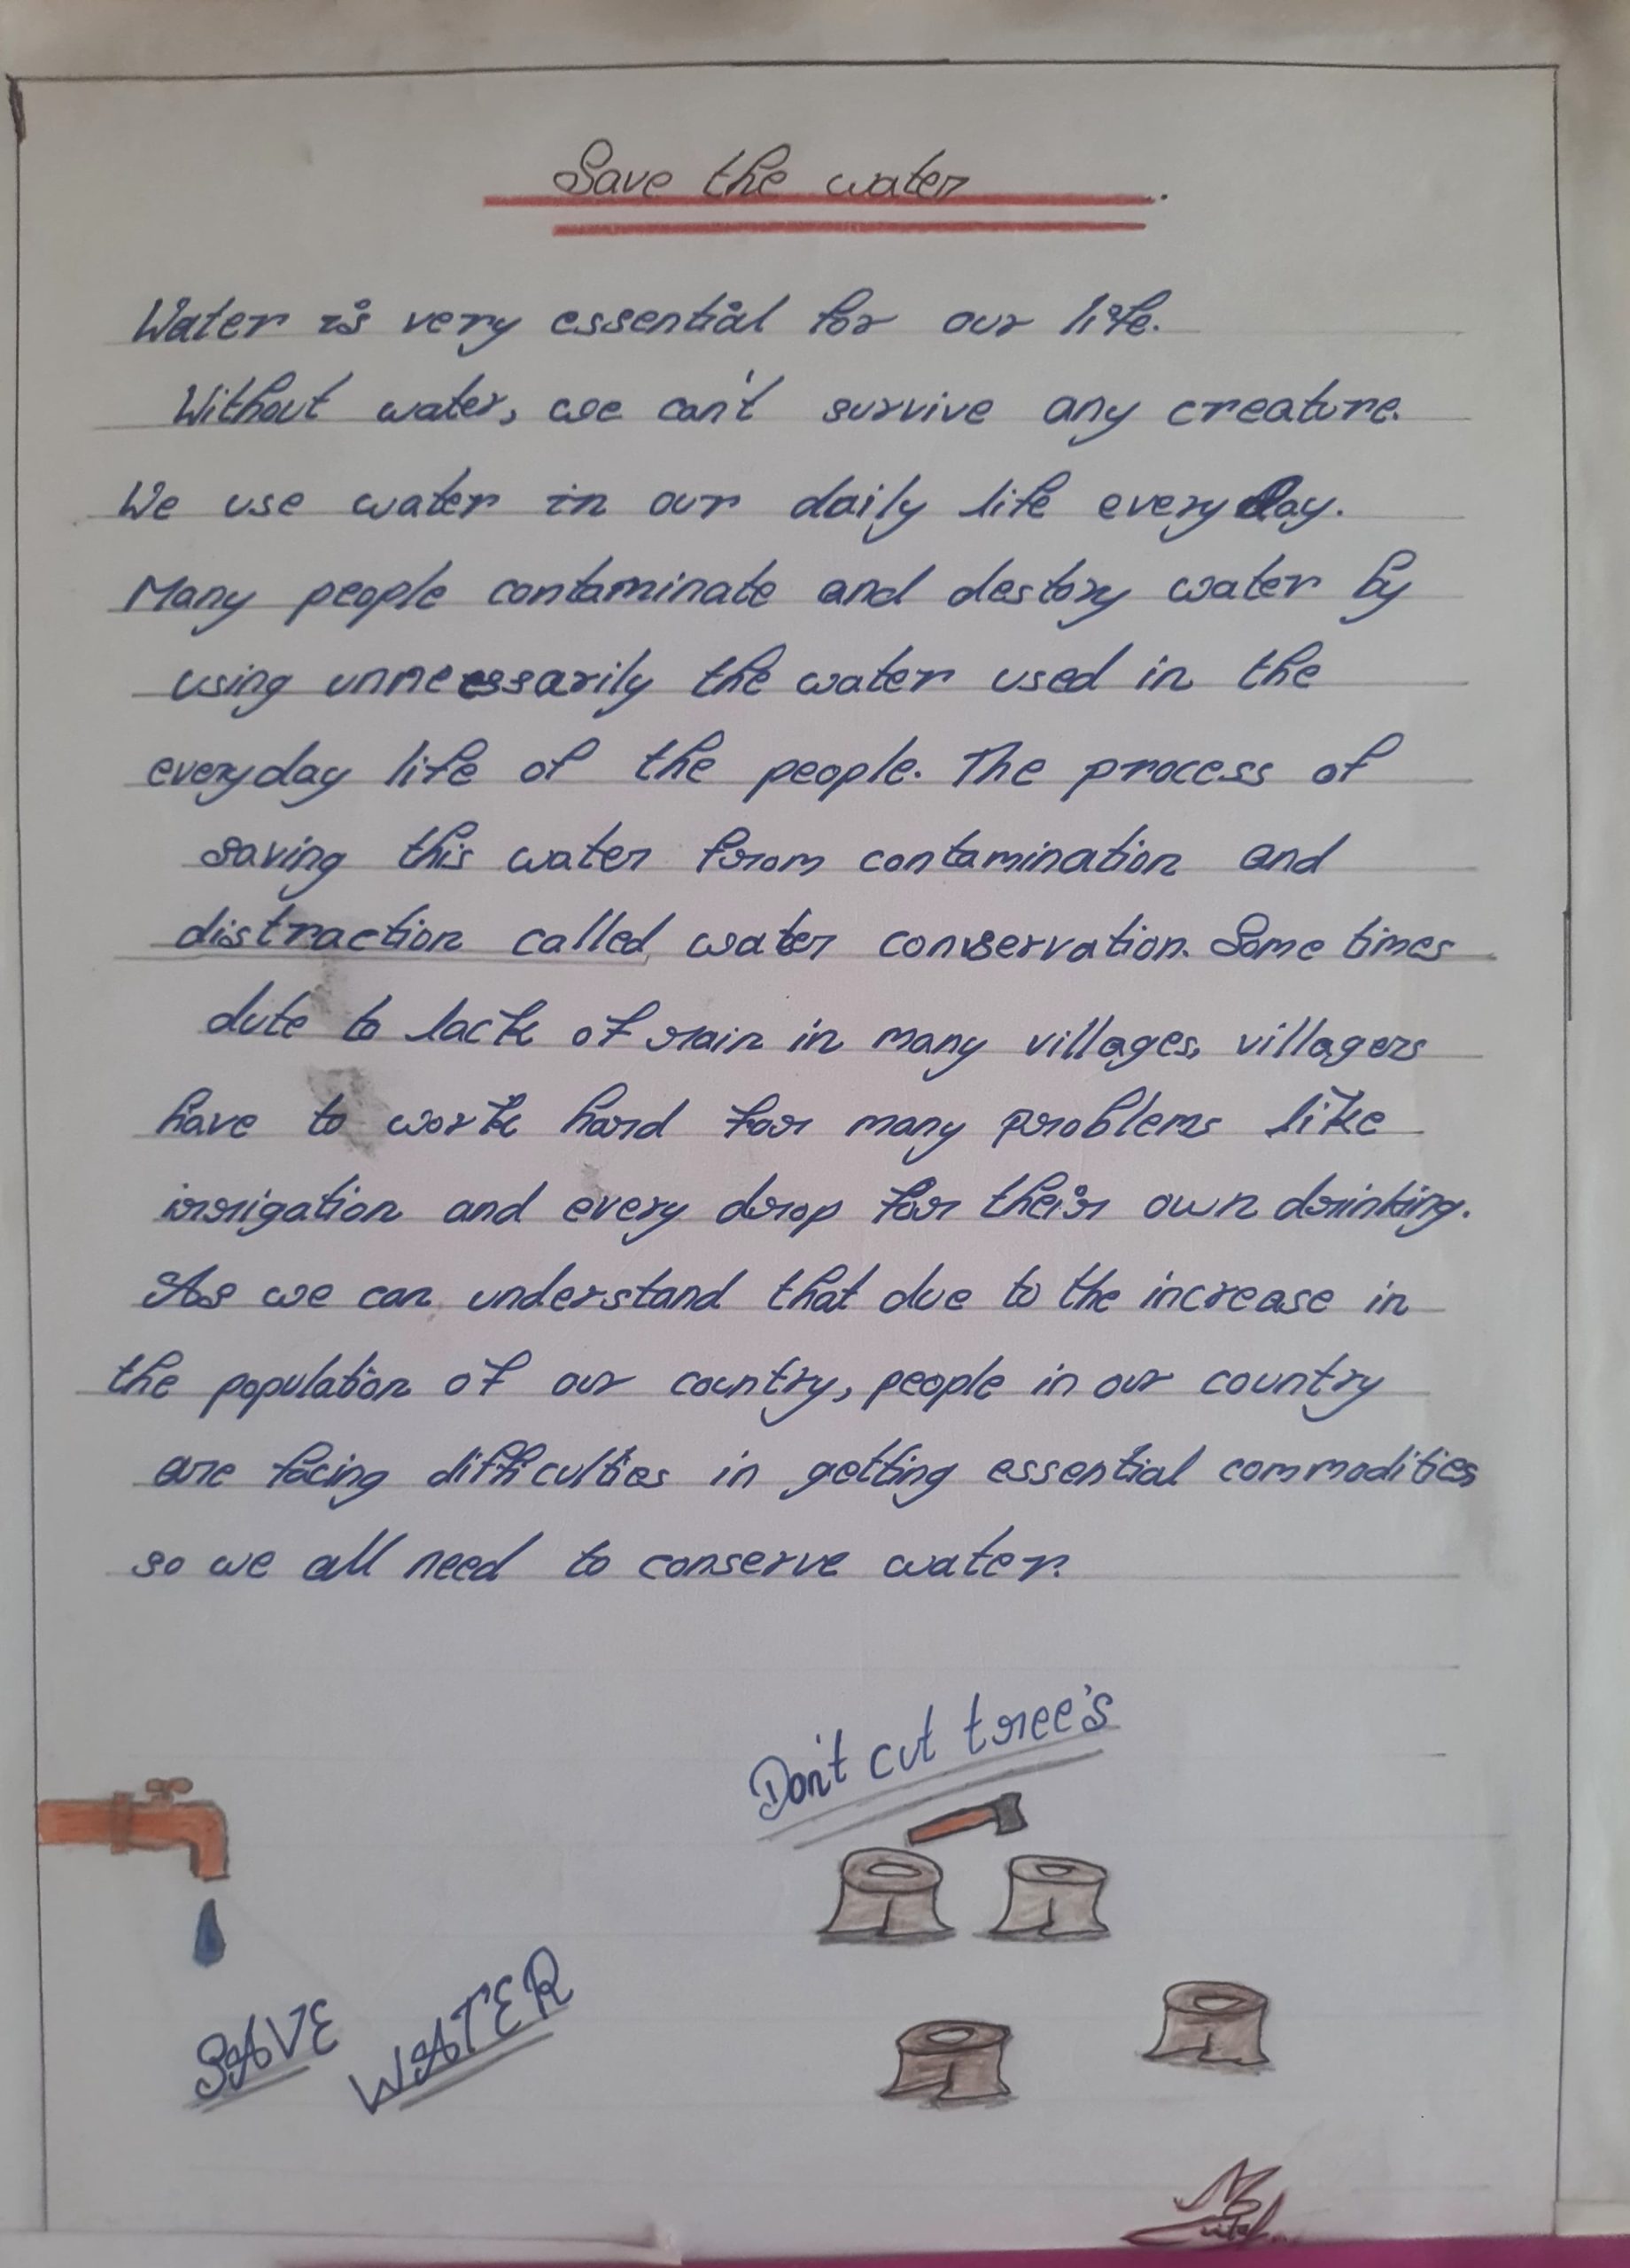 Save the water.
Water is very essential for our life.
Without water, we can't survive any creature.
We use water in our daily life everyday.
Many people contaminate and destory water by
using unnecessarily the water used in the
everyday life of the people. The process of
saving this water from contamination and
distraction called water conservation. Some times
dute to lack of rain in many villages, villagers
have to work hard for many problems like
irrigation and every drop for their own drinking.
As we can understand that due to the increase in
the population of our country, people in our country
are facing difficulties in getting essential commodities
so we all need to conserve water.
Don't cut tree's
SAVE WATER